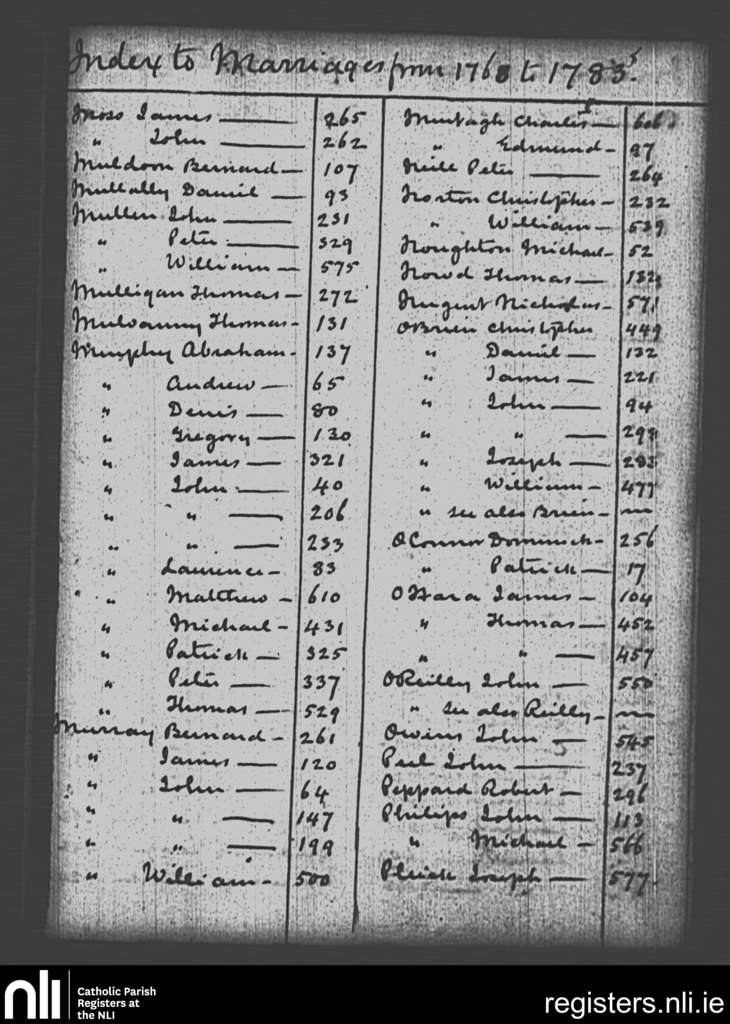 Index to Marriages from 1768 to 1785.
Moss James — 265
" John — 262
Muldoon Bernard — 107
Mullally Daniel — 93
Mullen John — 231
" Peter — 329
" William — 575
Mulligan Thomas — 272
Mulvanny Thomas - 131
Murphy Abraham - 137
" Andrew — 65
" Denis — 80
" Gregory — 130
" James — 321
" John — 40
" " — 206
" " — 233
" Laurence - 83
" Matthew - 610
" Michael - 431
" Patrick — 325
" Peter — 337
" Thomas — 529
Murray Bernard - 261
" James — 120
" John — 64
" " — 147
" " — 199
" William - 500
Murtagh Charles — 606
" Edmund - 97
Neill Peter — 264
Norton Christopher - 232
" William — 539
Noughton Michael - 52
Nowd Thomas — 132
Nugent Nicholas - 571
O'Brien Christopher 449
" Daniel — 132
" James — 221
" John — 94
" " — 298
" Joseph — 283
" William - 477
" see also Brien - —
O'Connor Dominick - 256
" Patrick — 17
O'Hara James - 104
" Thomas — 452
" " — 457
O'Reilly John — 550
" see also Reilly - —
Owens John — 545
Peel John — 237
Peppard Robert - 296
Philips John — 113
" Michael - 566
Joseph — 577
nli
Catholic Parish
Registers at
the NLI
registers.nli.ie